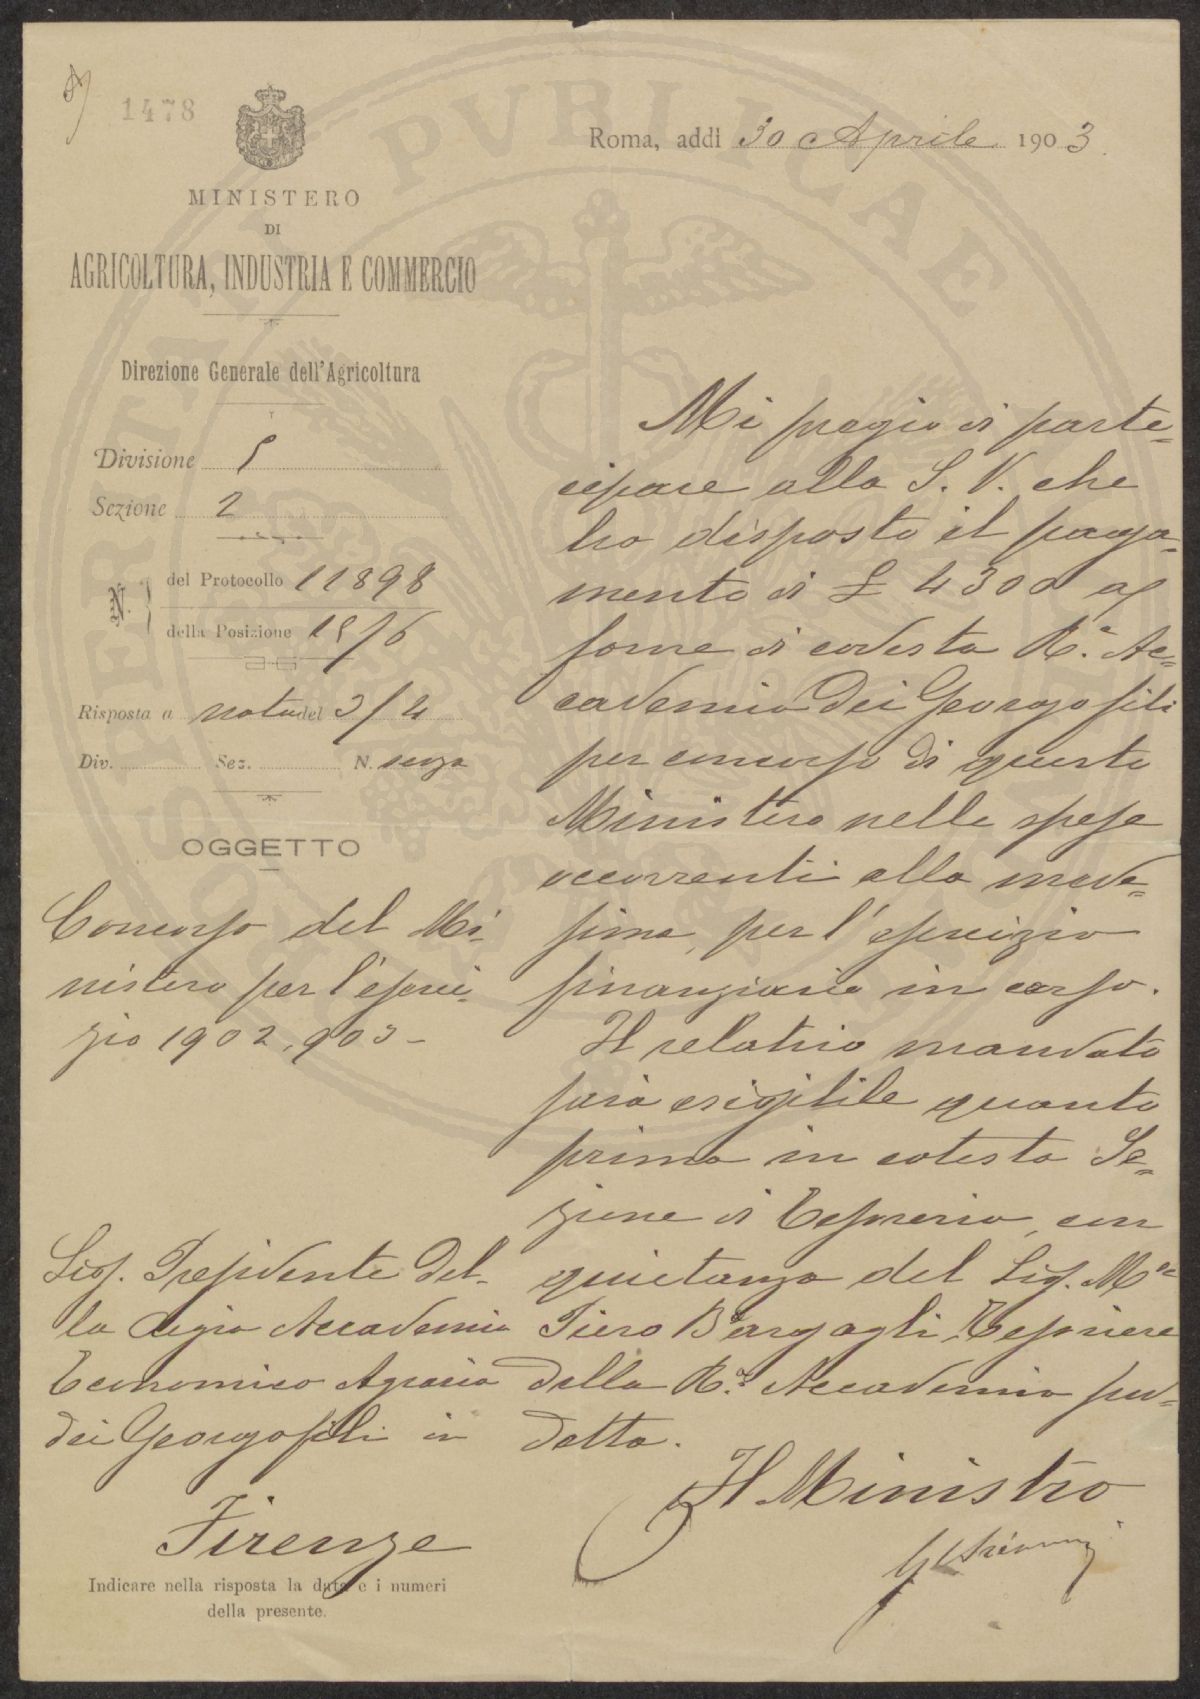 1478
Roma, addì 30 Aprile 1903
MINISTERO
DI
AGRICOLTURA, INDUSTRIA E COMMERCIO
Direzione Generale dell'Agricoltura
Divisione 5
Sezione 2
N. del Protocollo 11898
della Posizione 15/6
Risposta a nota del 3/4
Div. Sez. N. senza
OGGETTO
Concorso del Mi-
nistero per l'eserci-
zio 1902,903-
Sig. Presidente del-
la Regia Accademia
Economico Agraria
dei Georgofili in
Firenze
Indicare nella risposta la data e i numeri
della presente.
Mi pregio di parte-
cipare alla S. V. che
ho disposto il paga-
mento di £ 4300 a
favore di codesta R. Ac-
cademia dei Georgofili
per concorso di questo
Ministero nelle spese
occorrenti alla mede-
sima, per l'esercizio
finanziario in corso.
Il relativo mandato
sarà esigibile quanto
prima in cotesta Se-
zione di Tesoreria, con
quietanza del Sig. M.se
Piero Bargagli, Tesoriere
della R. Accademia sud-
detta.
Il Ministro
PVBLICAE